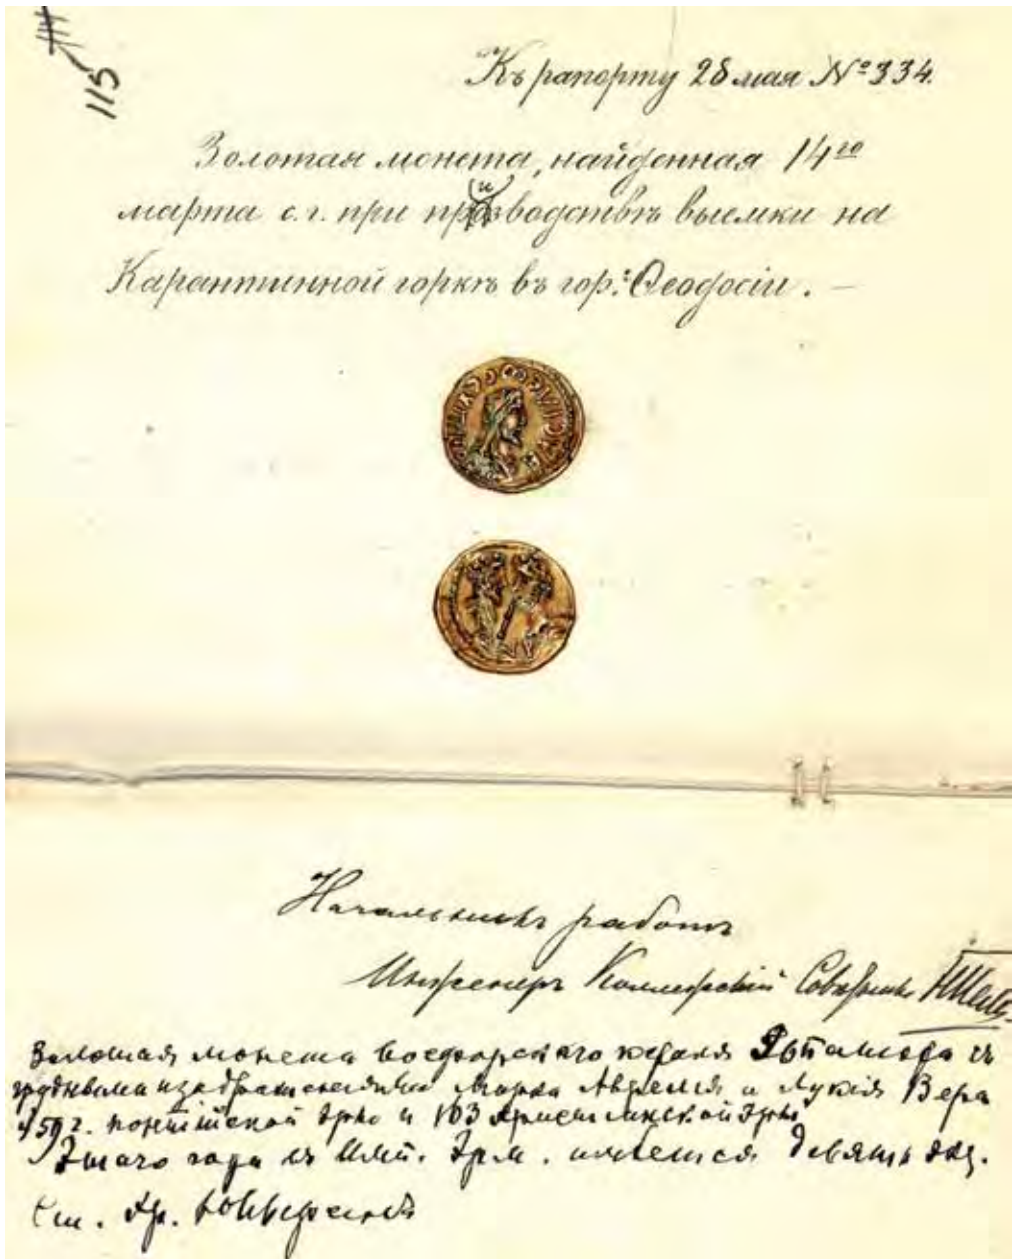 114
115
Къ рапорту 28 мая № 334.
Золотая монета, найденная 14го
марта с. г. при производствѣ выемки на
Карантинной горкѣ въ гор: Ѳеодосіи. —
Начальникъ работъ
Инженеръ Коллежскій Совѣтникъ
Золотая монета восфорскаго короля Эвпатора съ
грудными изображеніями Марка Аврелія и Лукія Вера
459 г. понтійской эры и 163 христіанской эры
Этого года въ Имп. Эрм. имѣется девять экз.
Ст. хр.